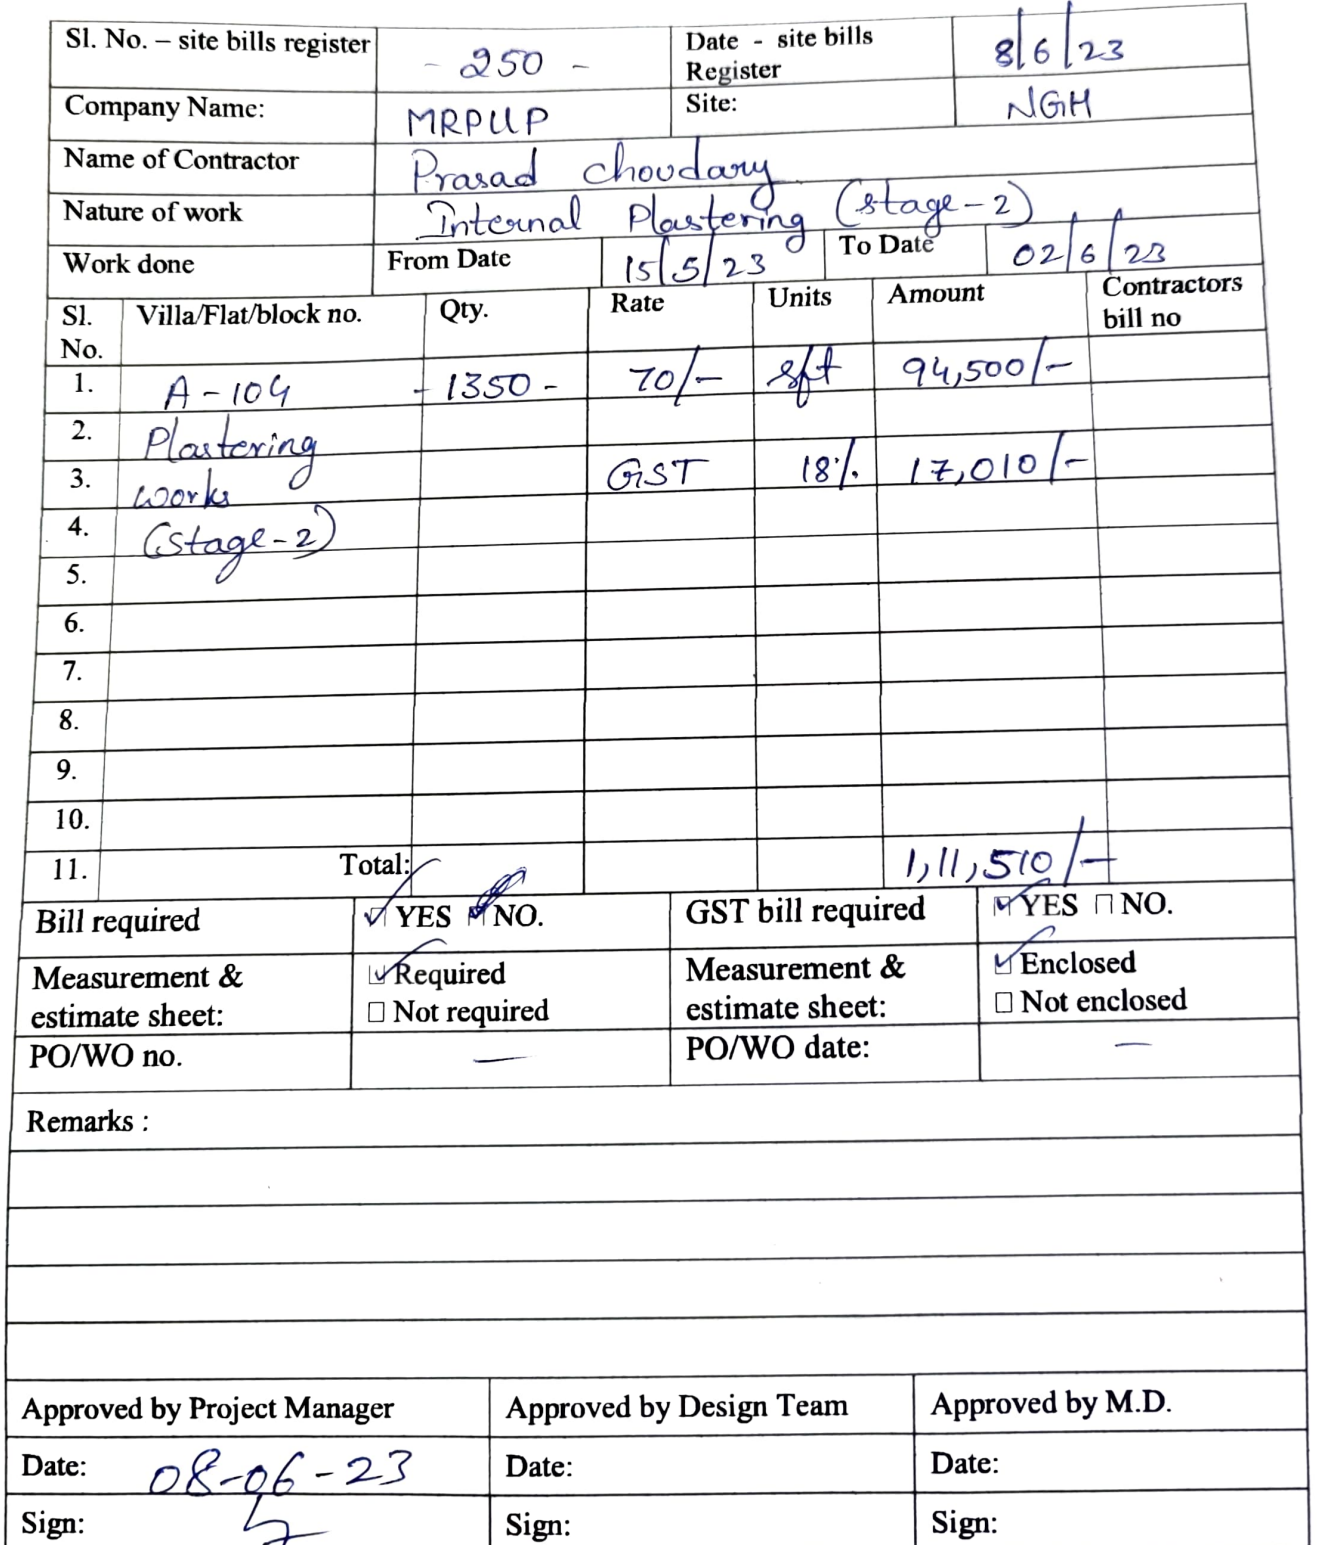 Sl. No. – site bills register - 250 - Date - site bills Register 8/6/23
Company Name: MRPLLP Site: NGH
Name of Contractor Prasad choudary
Nature of work Internal Plastering (stage-2)
Work done From Date 15/5/23 To Date 02/6/23
Sl. No. Villa/Flat/block no. Qty. Rate Units Amount Contractors bill no
1. A-104 - 1350 - 70/- sft 94,500/-
2. Plastering
3. works GST 18% 17,010/-
4. (stage-2)
5.
6.
7.
8.
9.
10.
11. Total: 1,11,510/-
Bill required YES NO. GST bill required YES NO.
Measurement & estimate sheet: Required Not required Measurement & estimate sheet: Enclosed Not enclosed
PO/WO no. — PO/WO date: —
Remarks :
Approved by Project Manager Approved by Design Team Approved by M.D.
Date: 08-06-23 Date: Date:
Sign: Sign: Sign: